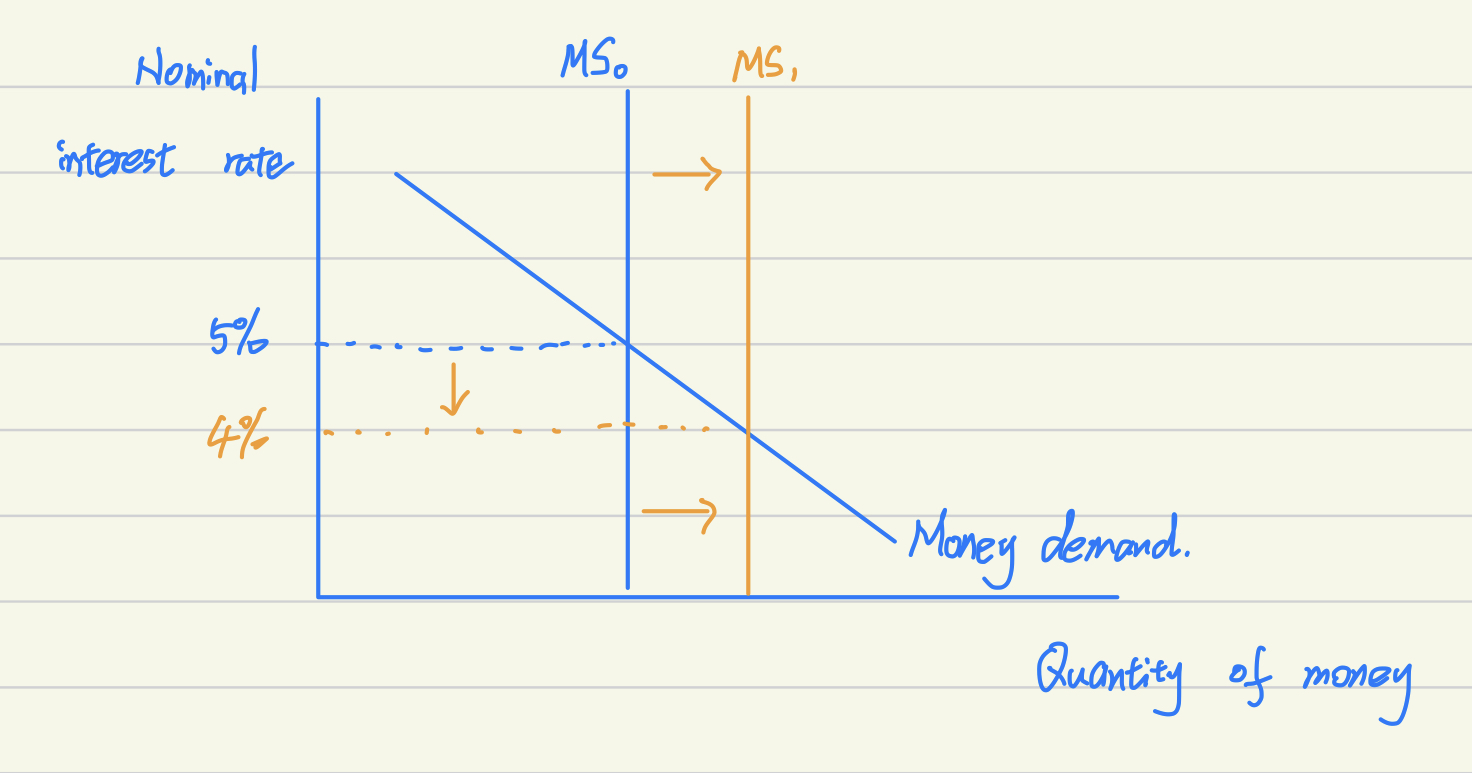 Nominal
interest rate
MS₀
MS₁
5%
4%
Money demand.
Quantity of money